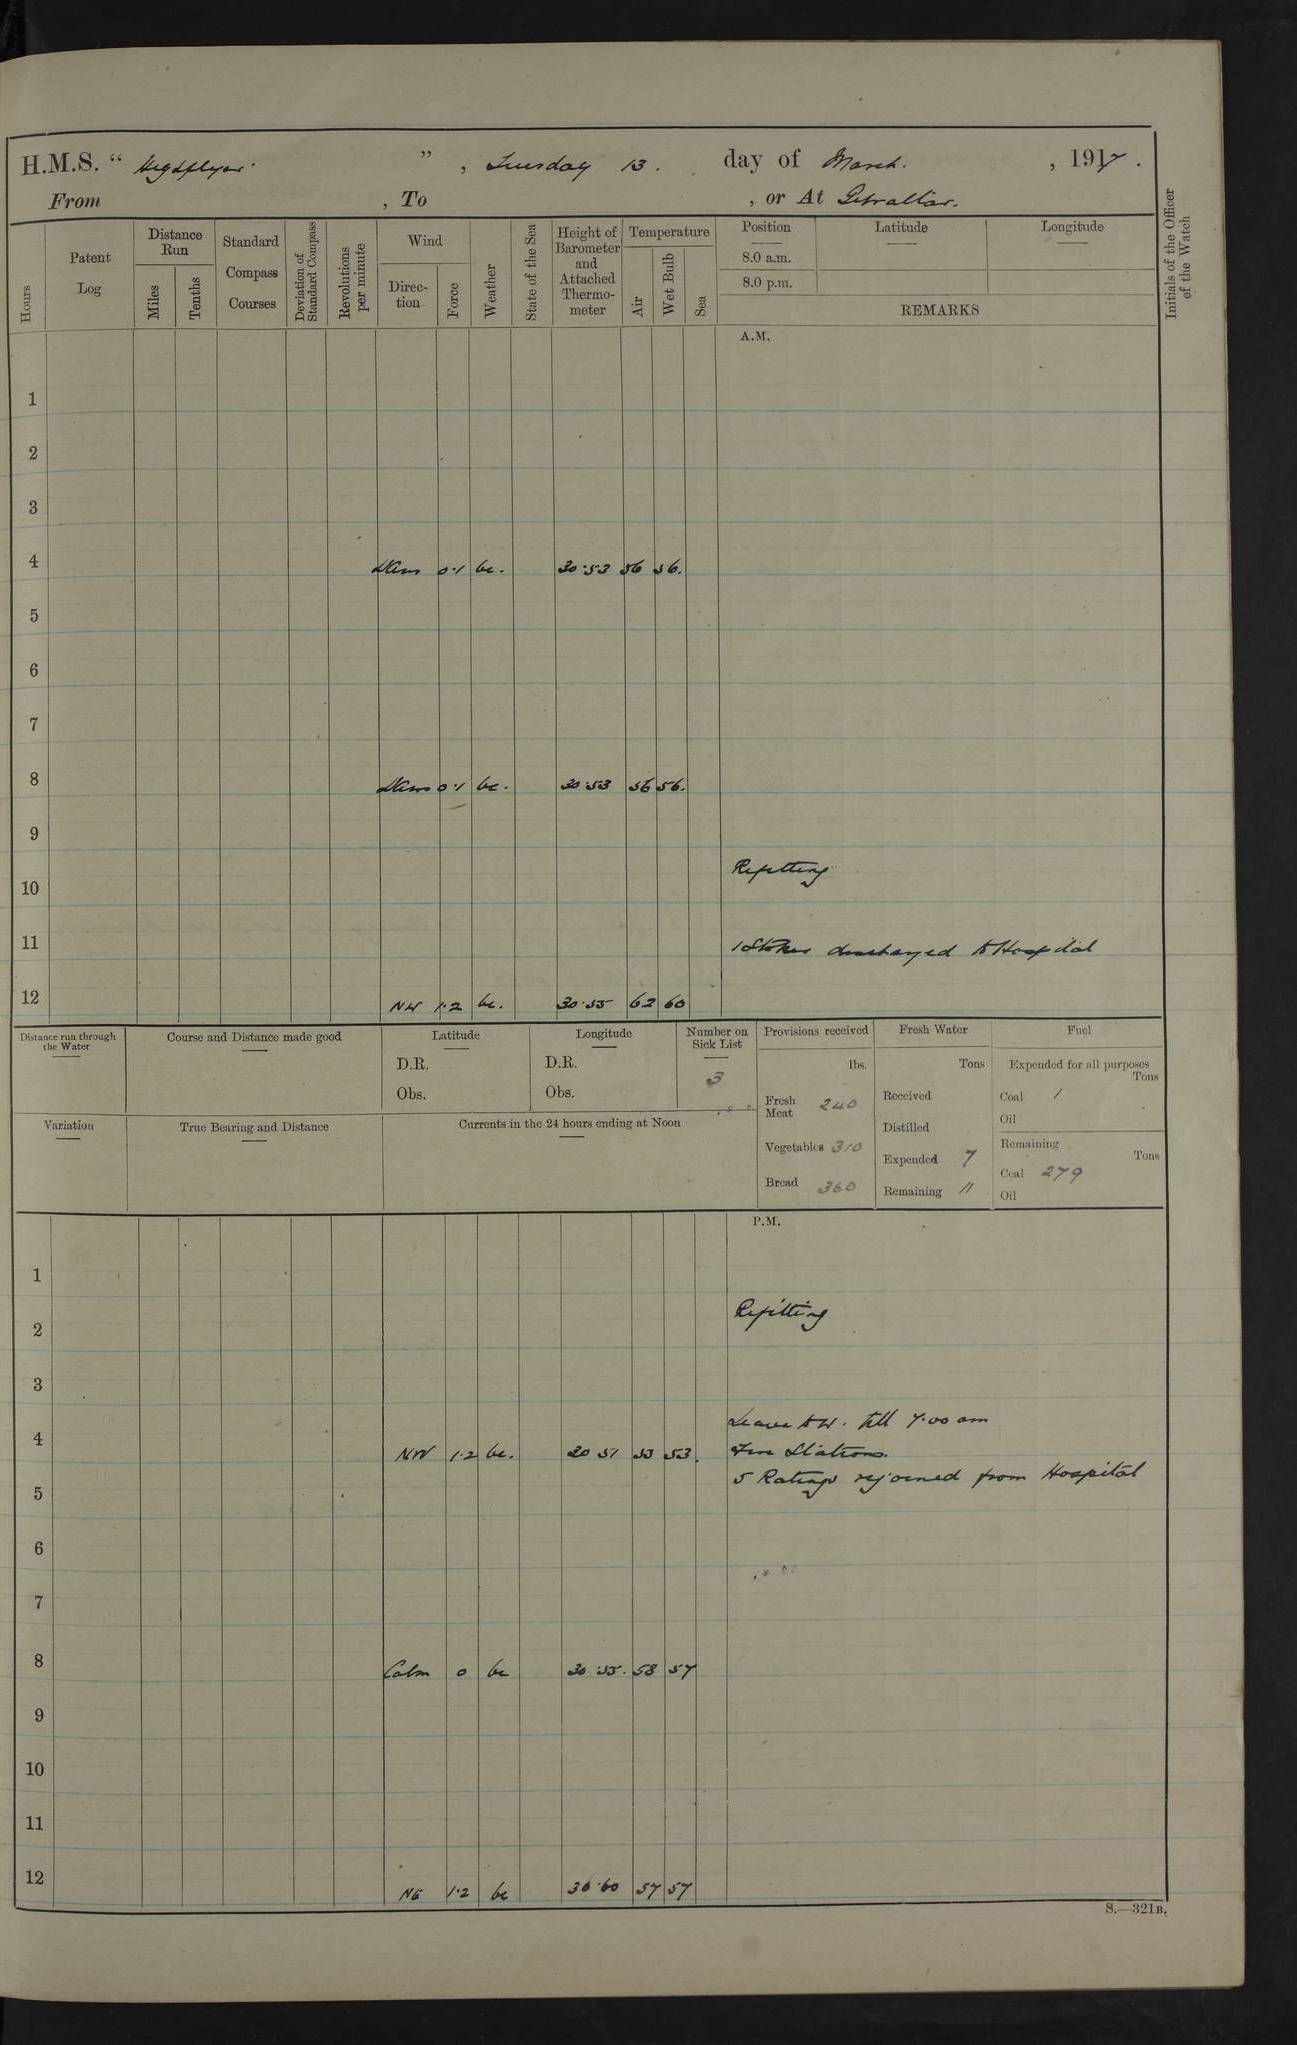 H.M.S. " Highflyer. " , Tuesday 13. day of March. , 1917.
From , To , or At Gibraltar.
Hours
Patent Log
Distance Run
Miles
Tenths
Standard Compass Courses
Deviation of Standard Compass
Revolutions per minute
Wind
Direction
Force
Weather
State of the Sea
Height of Barometer and Attached Thermometer
Temperature
Air
Wet Bulb
Sea
Position
8.0 a.m.
8.0 p.m.
Latitude
Longitude
REMARKS
Initials of the Officer of the Watch
A.M.
1
2
3
4 0·1 bc. 30·53 56 56.
5
6
7
8 0·1 bc. 30·53 56 56.
9
Refitting
10
11 1 Stoker discharged to Hospital
12 NW 1·2 bc. 30·55 62 60
Distance run through the Water
Course and Distance made good
Latitude
D.R.
Obs.
Longitude
D.R.
Obs.
Number on Sick List
3
Provisions received
lbs.
Fresh Meat 240
Vegetables 310
Bread 360
Fresh Water
Tons
Received
Distilled
Expended 7
Remaining 11
Fuel
Expended for all purposes
Tons
Coal 1
Oil
Remaining
Tons
Coal 279
Oil
Variation
True Bearing and Distance
Currents in the 24 hours ending at Noon
P.M.
1
Refitting
2
3
Leave to W. till 7.00 am
4 NW 1·2 bc. 30 51 55 53. Fire Stations.
5 Ratings rejoined from Hospital
5
6
7
8 Calm 0 bc 30·55. 58 57
9
10
11
12 NE 1·2 bc 30·60 57 57
S.—321B.